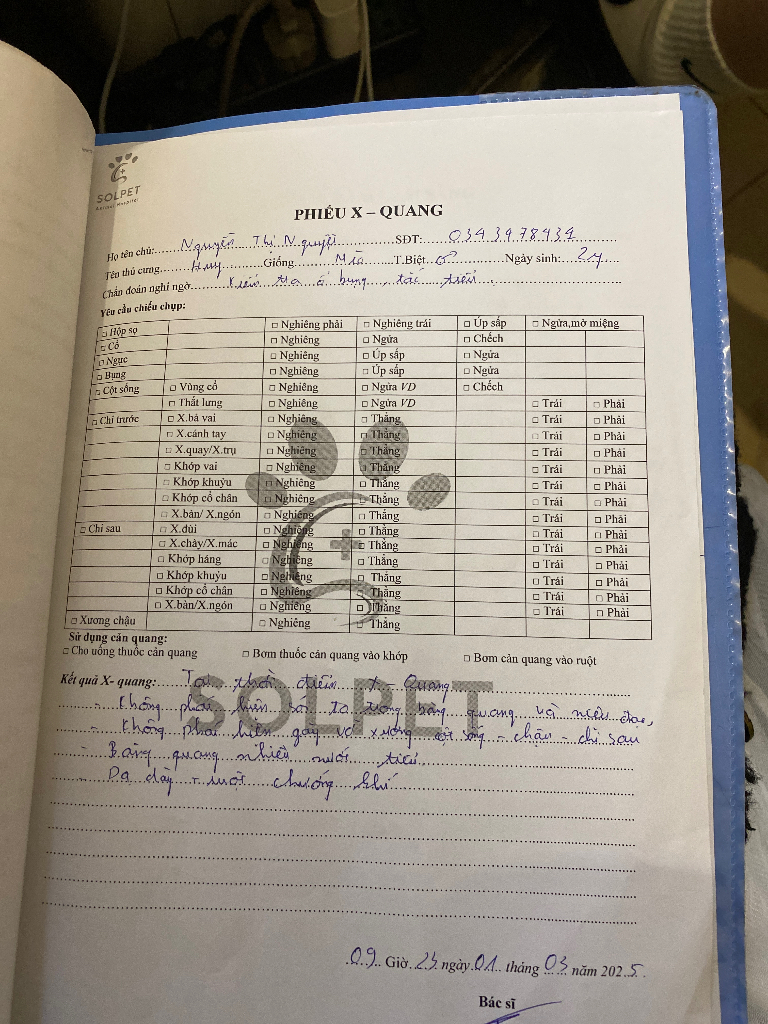 SOLPET
Animal Hospital
PHIẾU X – QUANG
Họ tên chủ: Nguyễn Thị Nguyệt SĐT: 0343978434
Tên thú cưng: Huy Giống Mià T.Biệt ♂ Ngày sinh: 2y
Chẩn đoán nghi ngờ Kiểm tra ổ bụng, tắc tiểu.
Yêu cầu chiếu chụp:
□ Hộp sọ □ Nghiêng phải □ Nghiêng trái □ Úp sấp □ Ngửa,mở miệng
□ Cổ □ Nghiêng □ Ngửa □ Chếch
□ Ngực □ Nghiêng □ Úp sấp □ Ngửa
□ Bụng □ Nghiêng □ Úp sấp □ Ngửa
□ Cột sống □ Vùng cổ □ Nghiêng □ Ngửa VD □ Chếch
□ Thắt lưng □ Nghiêng □ Ngửa VD □ Trái □ Phải
□ Chi trước □ X.bả vai □ Nghiêng □ Thẳng □ Trái □ Phải
□ X.cánh tay □ Nghiêng □ Thẳng □ Trái □ Phải
□ X.quay/X.trụ □ Nghiêng □ Thẳng □ Trái □ Phải
□ Khớp vai □ Nghiêng □ Thẳng □ Trái □ Phải
□ Khớp khuỷu □ Nghiêng □ Thẳng □ Trái □ Phải
□ Khớp cổ chân □ Nghiêng □ Thẳng □ Trái □ Phải
□ X.bàn/ X.ngón □ Nghiêng □ Thẳng □ Trái □ Phải
□ Chi sau □ X.đùi □ Nghiêng □ Thẳng □ Trái □ Phải
□ X.chày/X.mác □ Nghiêng □ Thẳng □ Trái □ Phải
□ Khớp háng □ Nghiêng □ Thẳng □ Trái □ Phải
□ Khớp khuỷu □ Nghiêng □ Thẳng □ Trái □ Phải
□ Khớp cổ chân □ Nghiêng □ Thẳng □ Trái □ Phải
□ X.bàn/X.ngón □ Nghiêng □ Thẳng □ Trái □ Phải
□ Xương chậu □ Nghiêng □ Thẳng
Sử dụng cản quang:
□ Cho uống thuốc cản quang □ Bơm thuốc cản quang vào khớp □ Bơm cản quang vào ruột
SOLPET
Kết quả X- quang: Tại thời điểm X Quang
- Không phát hiện sỏi to trong bàng quang và niệu đạo,
- Không phát hiện gãy vỡ xương cột sống - chậu - chi sau
- Bàng quang nhiều nước tiểu.
- Dạ dày - ruột chướng khí
09 Giờ 23 ngày 01 tháng 03 năm 2025.
Bác sĩ